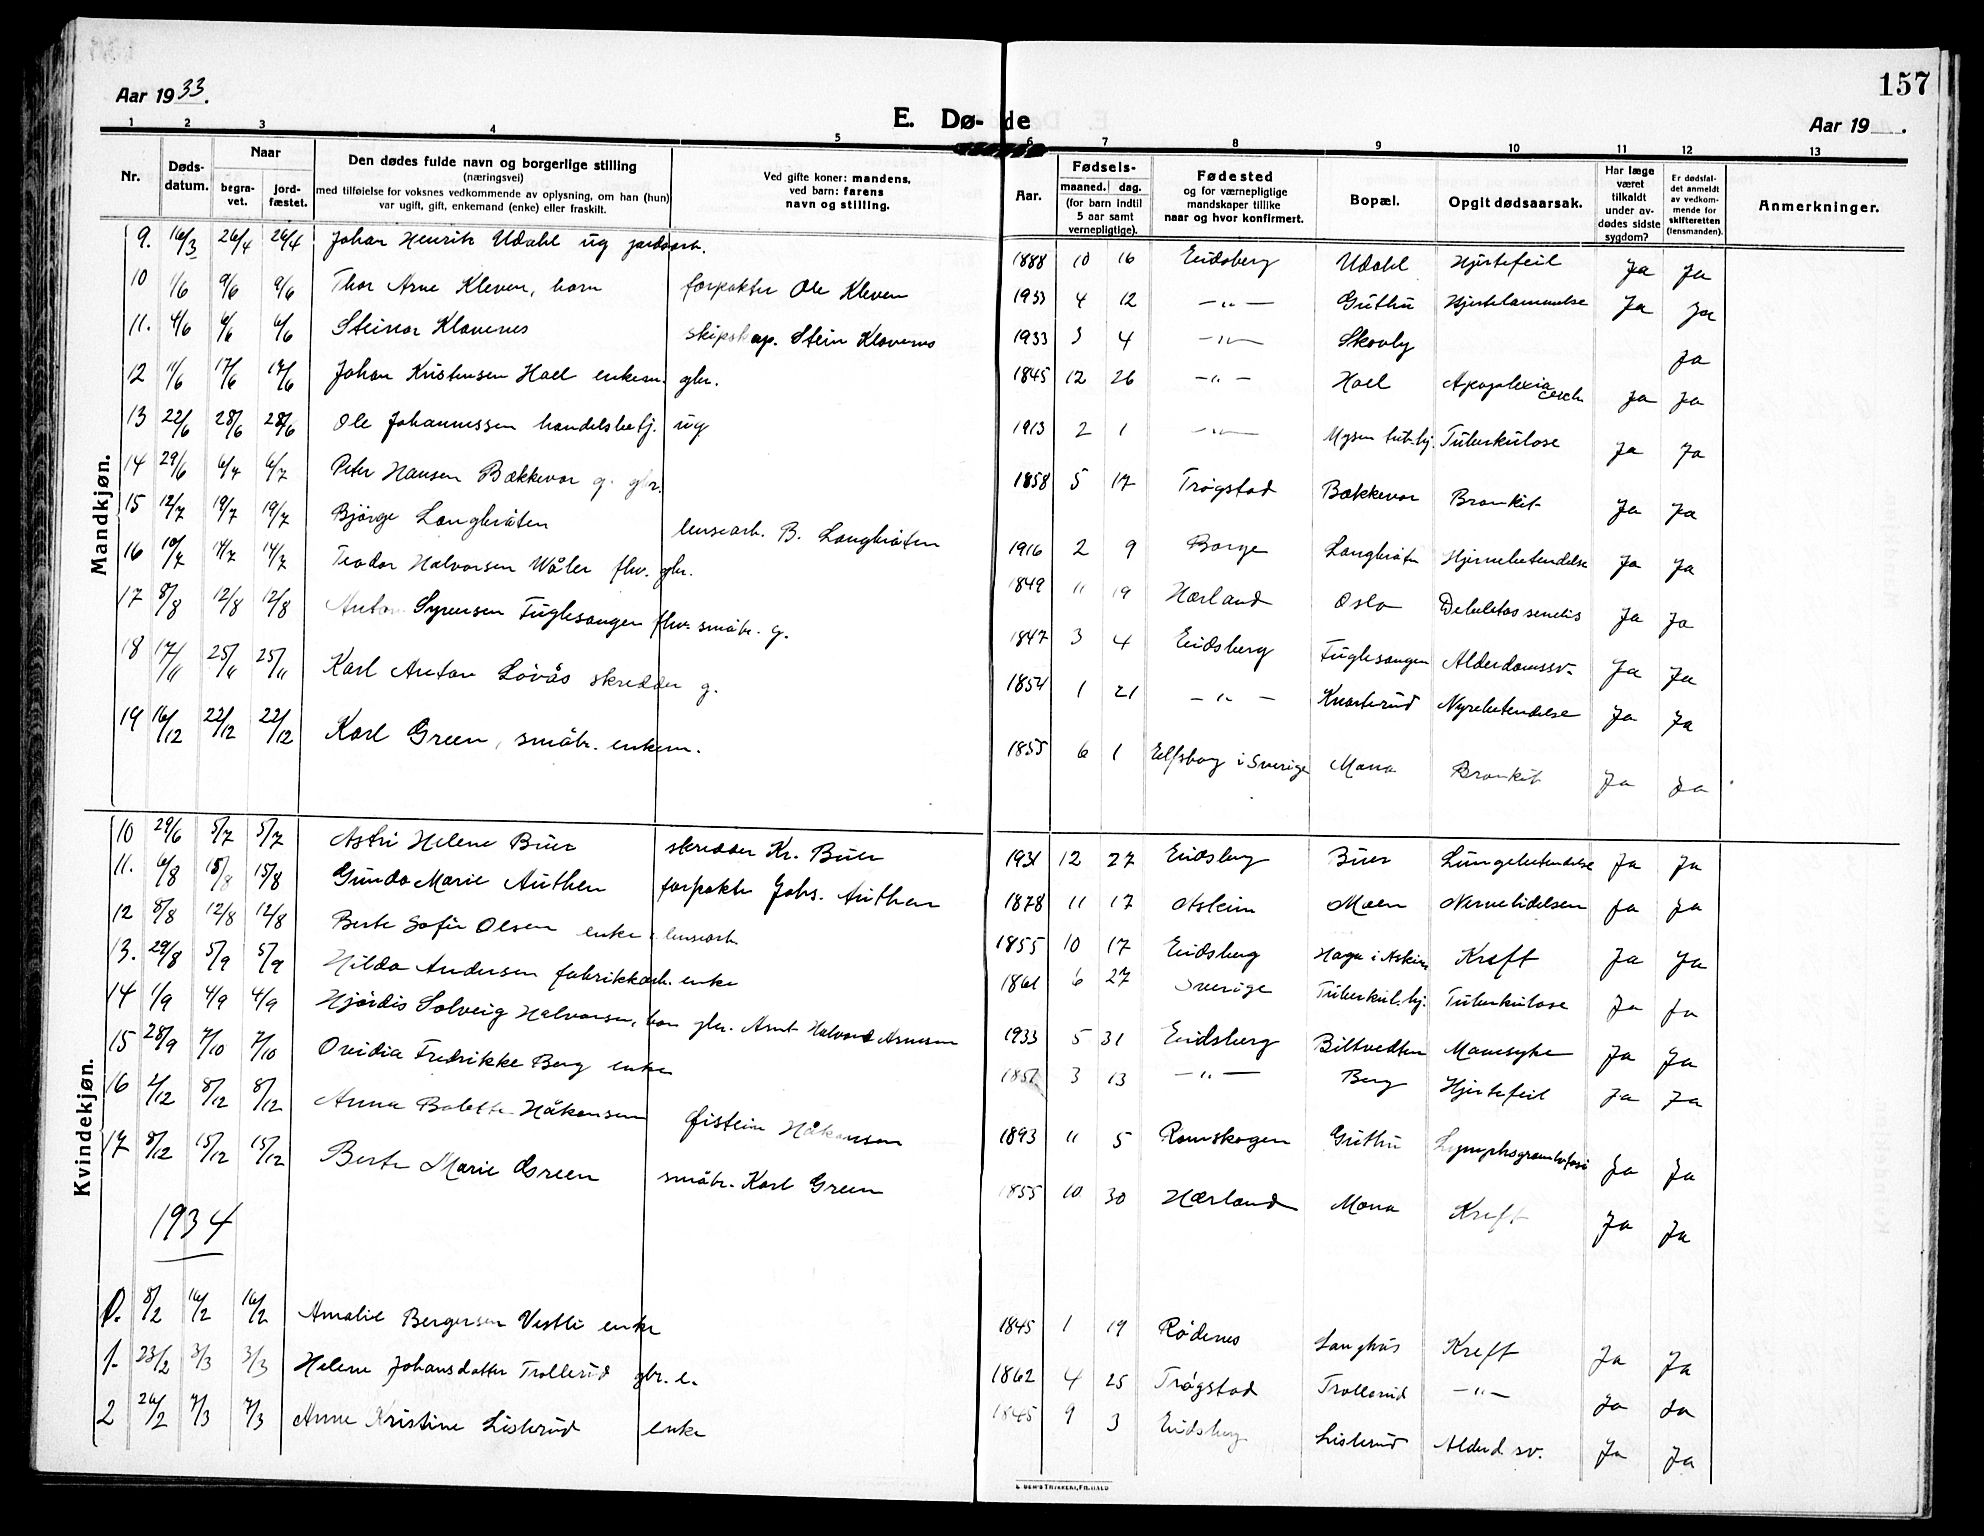 157
Aar 1933.
E. Dø- de
Aar 19 .
1 2 3 4 5 6 7 8 9 10 11 12 13
Nr. Døds-datum. Naar begra-vet. jord-fæstet. Den dødes fulde navn og borgerlige stilling (næringsvei) med tilføielse for voksnes vedkommende av oplysning, om han (hun) var ugift, gift, enkemand (enke) eller fraskilt. Ved gifte koner: mandens, ved barn: farens navn og stilling. Aar. Fødsels- maaned. dag. (for barn indtil 5 aar samt vernepligtige). Fødested og for værnepligtige mandskaper tillike naar og hvor konfirmert. Bopæl. Opgit dødsaarsak. Har læge været tilkaldt under av-dødes sidste sygdom? Er dødsfal-det anmeldt av vedkom-mende for skifteretten (lensmanden). Anmerkninger.
Mandkjøn.
9. 16/3 26/4 26/4 Johan Henrik Udahl ug jordarb. 1888 10 16 Eidsberg Udahl Hjertefeil Ja Ja
10 1/6 9/6 9/6 Thor Arne Kleven, barn forpakter Ole Kleven 1933 4 12 —„— Guthu Hjertelammelse Ja Ja
11. 4/6 6/6 6/6 Steinar Klavenes skipskap. Stein Klavenes 1933 3 4 —„— Skovby Ja
12 11/6 17/6 17/6 Johan Kristensen Hoel enkem. gbr. 1845 12 26 —„— Hoel Apoplexia cereb Ja Ja
13 22/6 28/6 28/6 Ole Johannessen handelsbetj. ug 1913 2 1 —„— Mysen tub.hj. Tuberkulose Ja Ja
14 29/6 6/7 6/7 Peter Hansen Bækkevar g. gbr. 1858 5 17 Trøgstad Bækkevar Bronkit Ja Ja
15 12/7 19/7 19/7 Bjørge Langbråten lensearb. B. Langbråten 1916 2 9 Borge Langbråten Hjernebetendelse Ja Ja
16 10/7 14/7 14/7 Teodor Halvorsen Wåler fhv. gbr. 1849 11 19 Hærland Oslo Debilitas senilis Ja Ja
17 8/8 12/8 12/8 Anton Syrensen Fuglesangen fhv. småbr. g. 1847 3 4 Eidsberg Fuglesangen Alderdomssv. Ja Ja
18 17/11 25/11 25/11 Karl Anton Løvås skredder g. 1854 1 21 —„— Knarterud Nyrebetendelse Ja Ja
19 16/12 22/12 22/12 Karl Green, småbr. enkem. 1855 6 1 Elfsborg i Sverige Mona Bronkit Ja Ja
Kvindekjøn.
10 29/6 5/7 5/7 Astri Helene Buer skredder Kr. Buer 1931 12 27 Eidsberg Buer Lungebetendelse Ja Ja
11. 6/8 15/8 15/8 Gunda Marie Authen forpakter Johs. Authen 1878 11 17 Moen Nervelidelsen Ja Ja
12 8/8 12/8 12/8 Berte Sofie Olsen enke e. lensearb. 1855 10 17 Eidsberg Haga i Askim Kreft Ja Ja
13. 29/8 5/9 5/9 Hilda Andersen fabrikkarb. enke 1861 6 27 Sverige Tuberkul.hj. Tuberkulose Ja Ja
14 1/9 4/9 4/9 Hjørdis Solveig Halvorsen, barn gbr. Arnt Halvard Arnesen 1933 5 31 Eidsberg Biltvedten Mavesyke Ja Ja
15 28/9 7/10 7/10 Ovidia Fredrikke Berg enke 1851 3 13 —„— Berg Hjertefeil Ja Ja
16 2/12 8/12 8/12 Anna Bolette Håkensen Øistein Håkensen 1893 11 5 Rømskogen Guthu Ja Ja
17 8/12 15/12 15/12 Berte Marie Green småbr. Karl Green 1855 10 30 Hærland Mona Kreft Ja Ja
1934
0. 8/2 16/2 16/2 Amalie Bergersen Vestli enke 1845 1 19 Rødenes Langhus Kreft Ja Ja
1. 23/2 3/3 3/3 Helene Johansdatter Trollerud gbr. e. 1862 4 25 Trøgstad Trollerud —„— Ja Ja
2 26/2 7/3 7/3 Anne Kristine Listerud enke 1845 9 3 Eidsberg Listerud Alderd. sv. Ja Ja